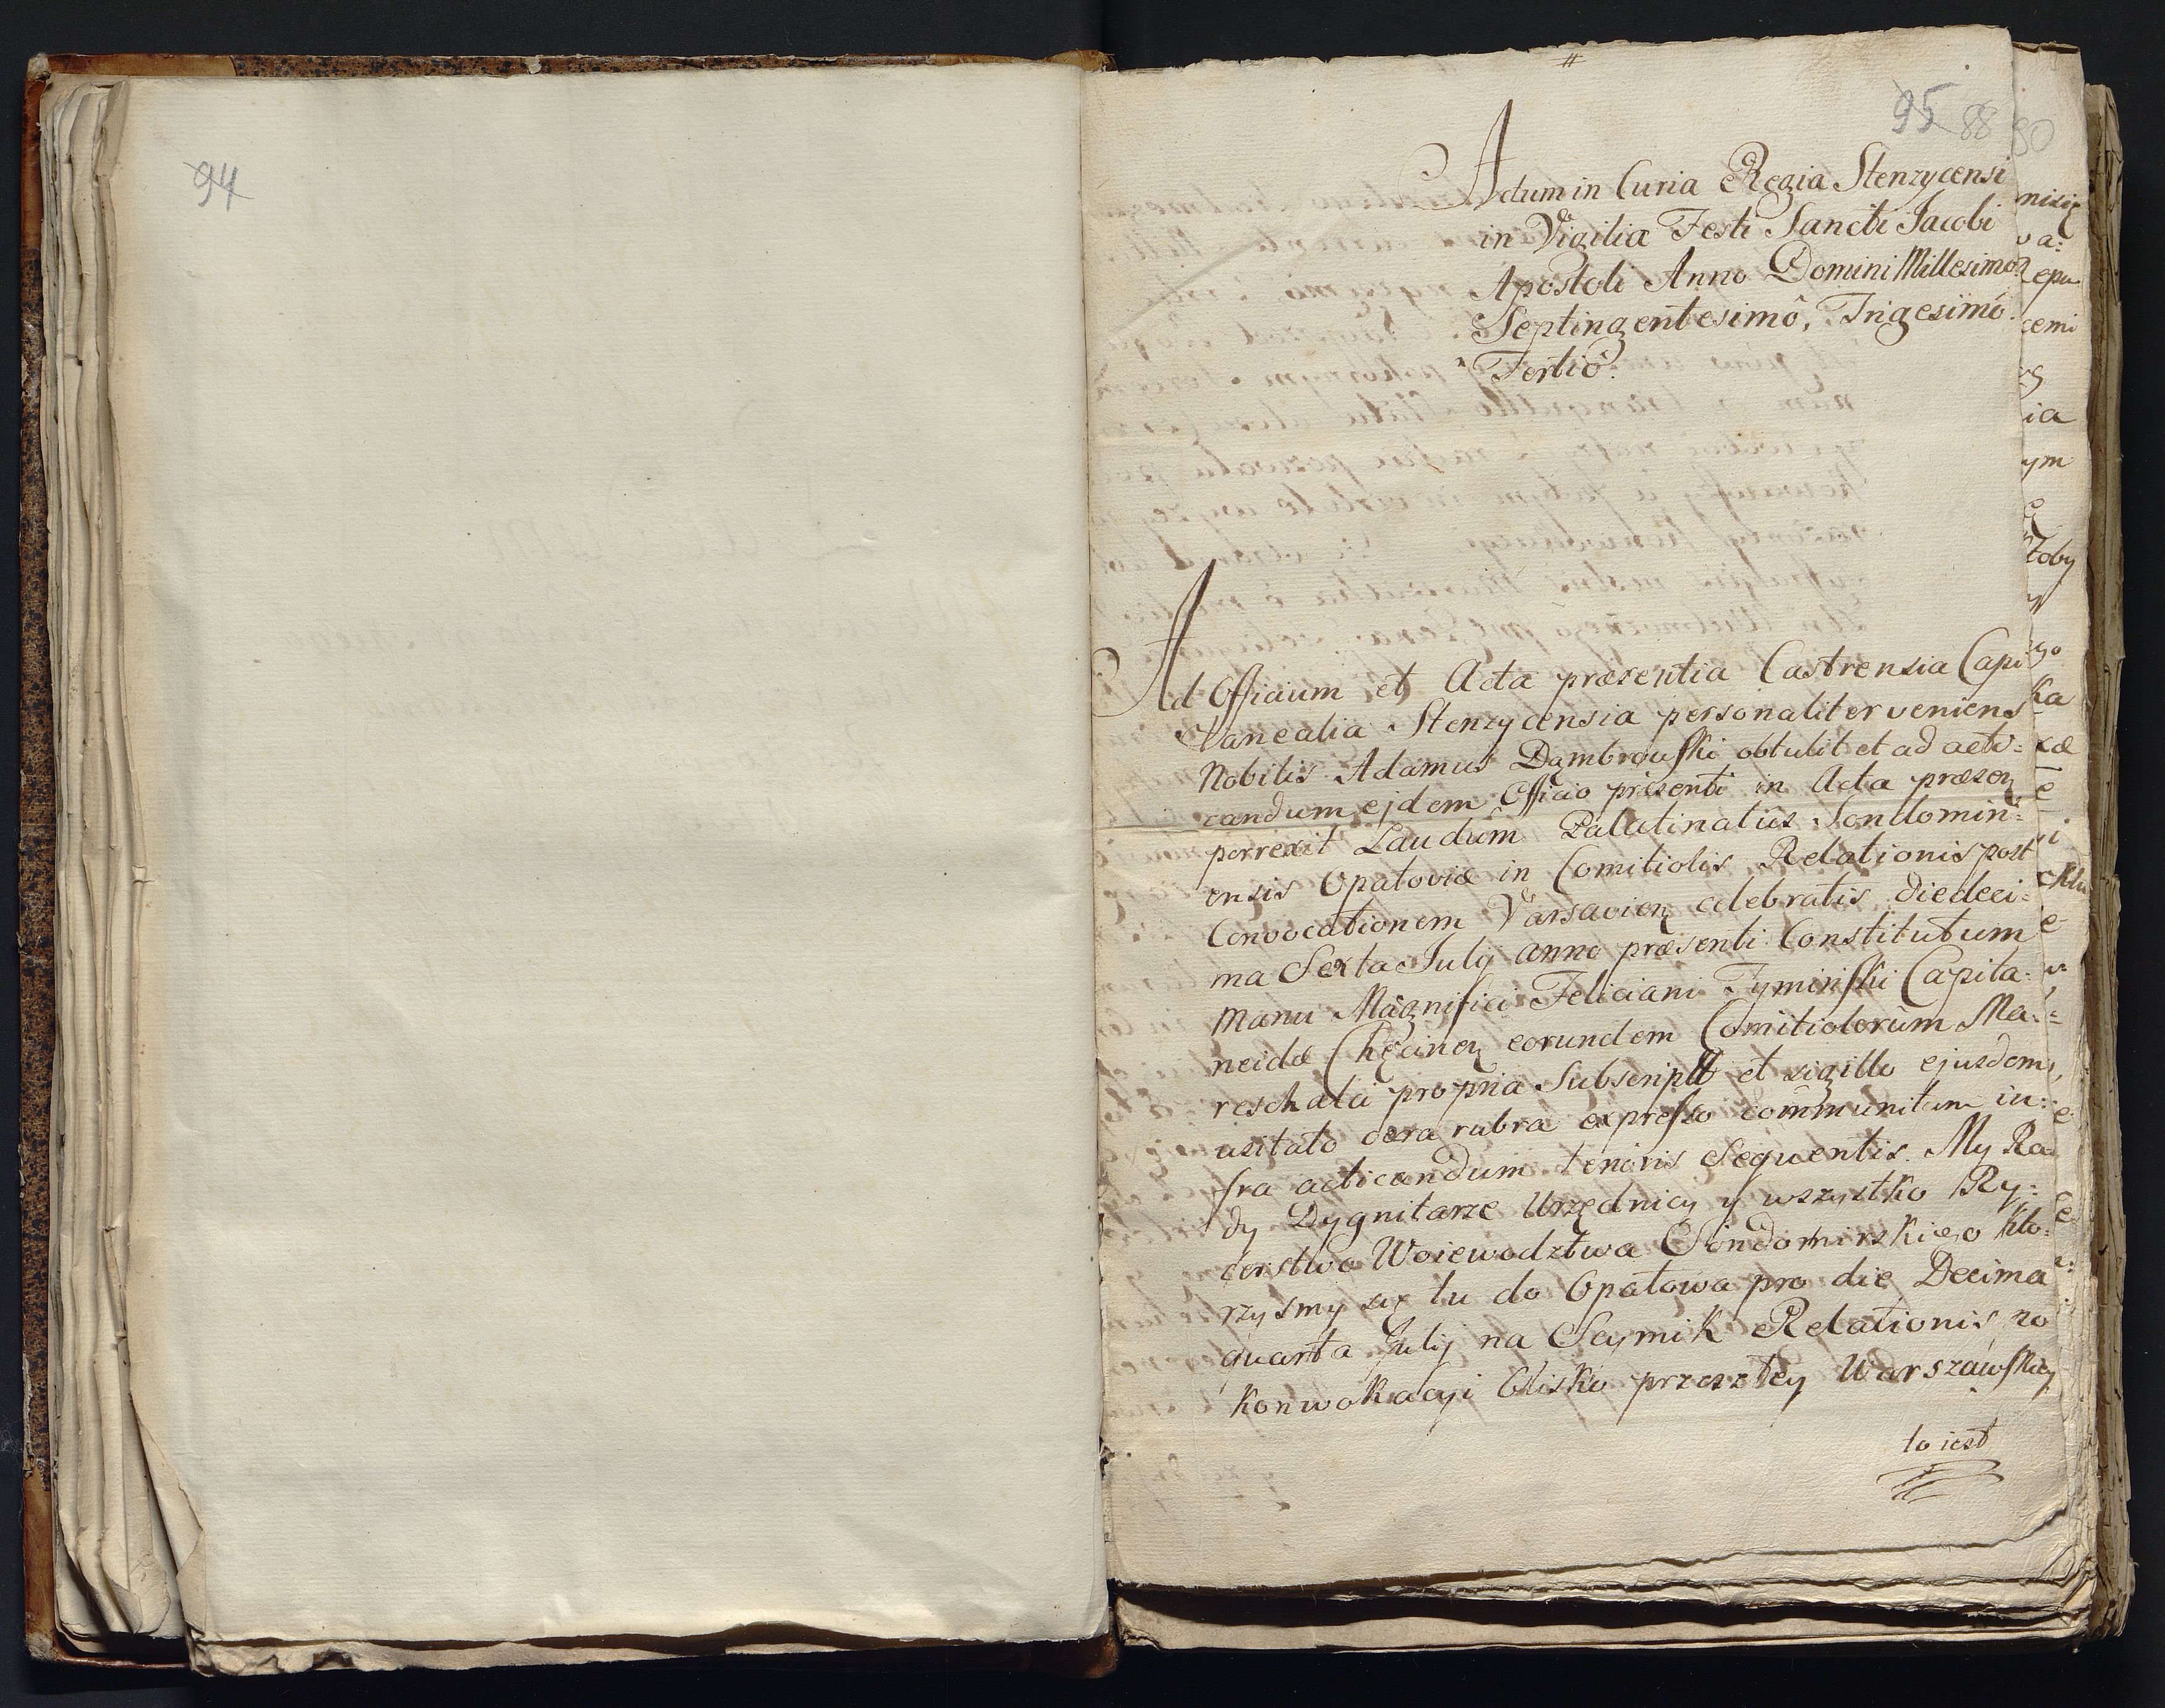 94
95 88 90
Actum in Curia Regia Stenzycensi
in Vigilia Festi Sancti Jacobi
Apostoli Anno Domini Millesimo
Septingentesimô, Trigesimô
Tertiô.
Ad Officium et Acta præsentia Castrensia Capi
tanealia Stenzycensia personaliter veniens
Nobilis Adamus Dąmbrowski obtulit et ad acti=
candum ejdem Officio præsenti in Acta præsen
porrexit Laudum Palatinatûs Sendomiri=
ensis Opatoviæ in Comitiolis Relationis post
Convocationem Varsavien celebratis die deci=
ma Sexta Julij anno præsenti Constitutum
Manu Magnifici Feliciani Tyminski Capita=
neidæ Chęcinen eorundem Comitiolorum Ma=
reschalci propria Subscriptt et sigillo ejusdem
usitato cera rubra expresso communitum in=
fra acticandum tenoris Sequentis. My Ra
dy Dygnitarze Urzędnicy y wszystko Ry=
cerstwo Woiewodztwa Sendomirskiego kto=
rzysmy się tu do Opatowa pro die Decima
quarta Julij na Seymik Relationis, po
Konwokacyi blisko przeszłey Warszawskiey
to iest